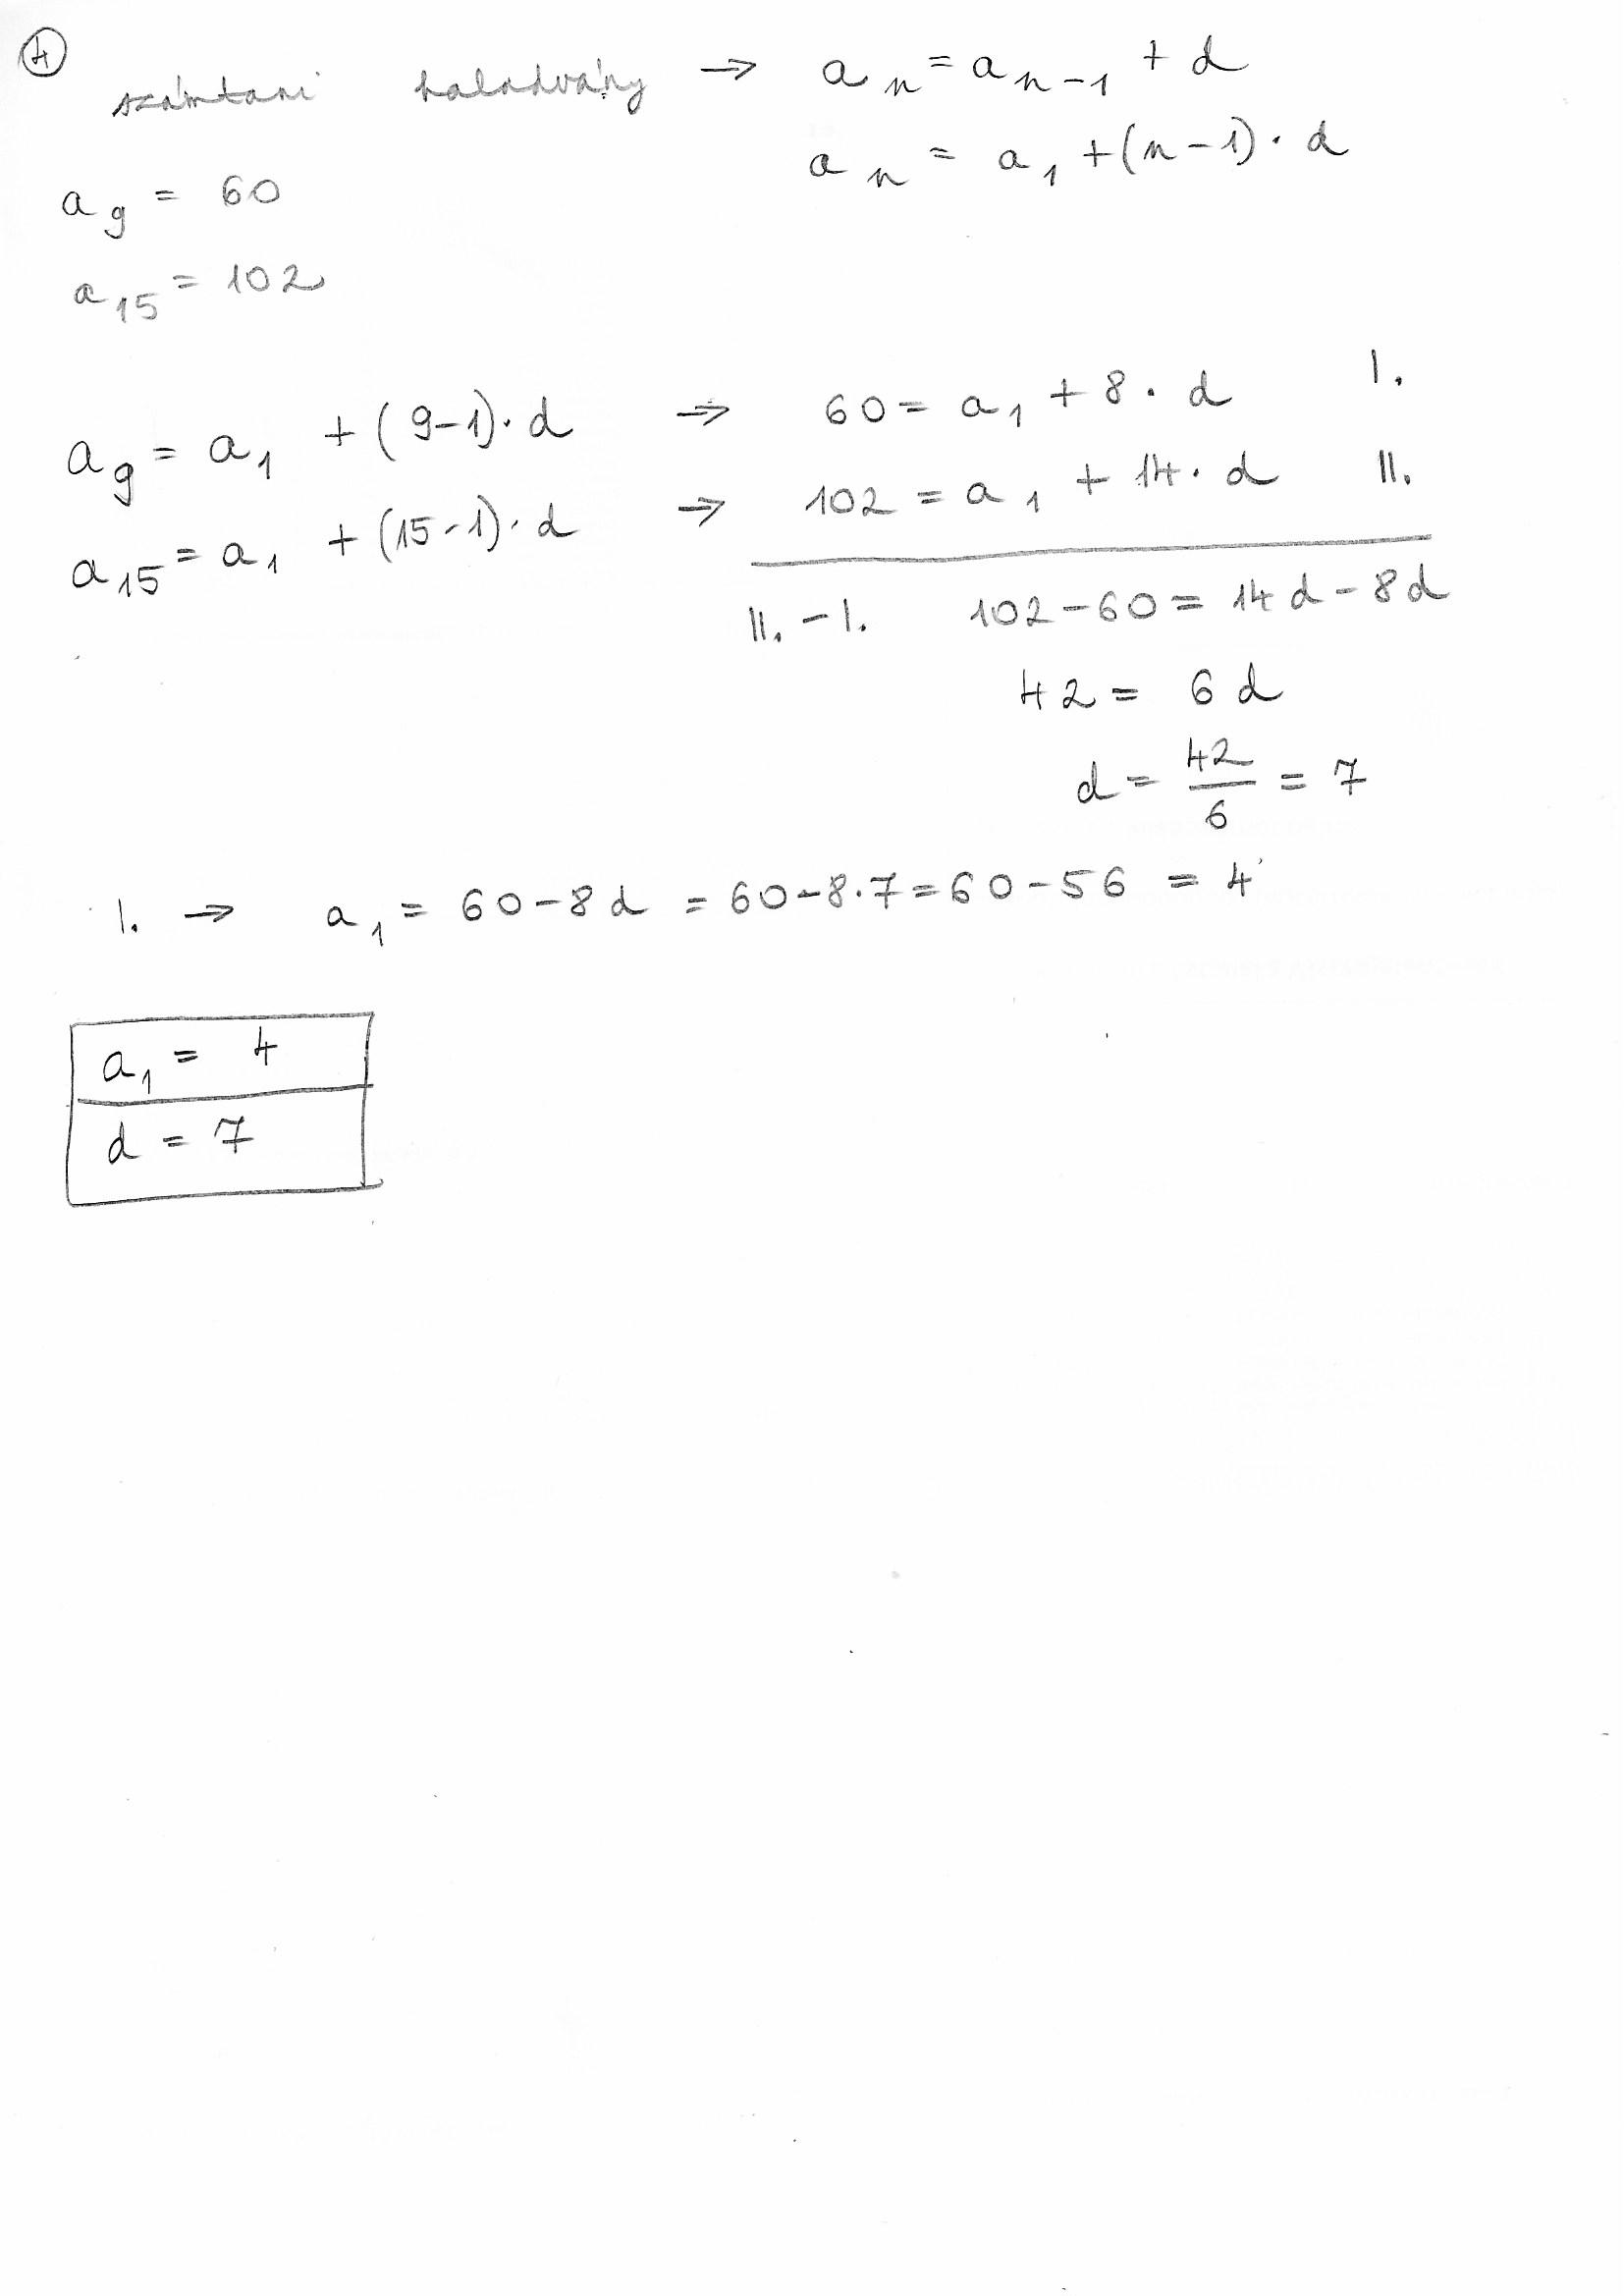 4
számtani haladvány → aₙ = aₙ₋₁ + d
aₙ = a₁ + (n-1)·d
a₉ = 60
a₁₅ = 102
a₉ = a₁ + (9-1)·d → 60 = a₁ + 8·d I.
a₁₅ = a₁ + (15-1)·d → 102 = a₁ + 14·d II.
II. - I. 102-60 = 14d-8d
42 = 6d
d = 42/6 = 7
I. → a₁ = 60-8d = 60-8·7 = 60-56 = 4
a₁ = 4
d = 7